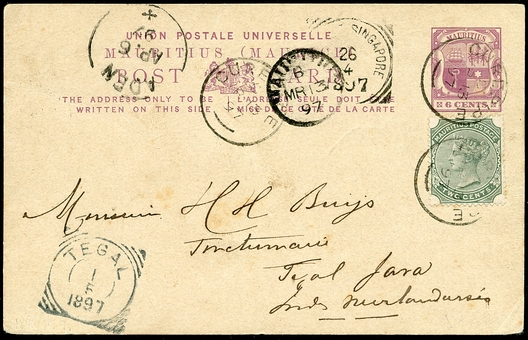 UNION POSTALE UNIVERSELLE
MAURITIUS (MAURICE)
POST CARD
THE ADDRESS ONLY TO BE WRITTEN ON THIS SIDE.
L'ADRESSE SEULE DOIT ÊTRE MISE DE CE CÔTÉ DE LA CARTE
MAURITIUS
6 CENTS
MAURITIUS POSTAGE
TWO CENTS
ADEN
AP. 6
97
CUREPIPE
MAURITIUS
B
MR 13
97
SINGAPORE
26
4
897
Monsieur H H Buijs
Tegal Java
Indes neerlandaises
TEGAL
1
5
1897